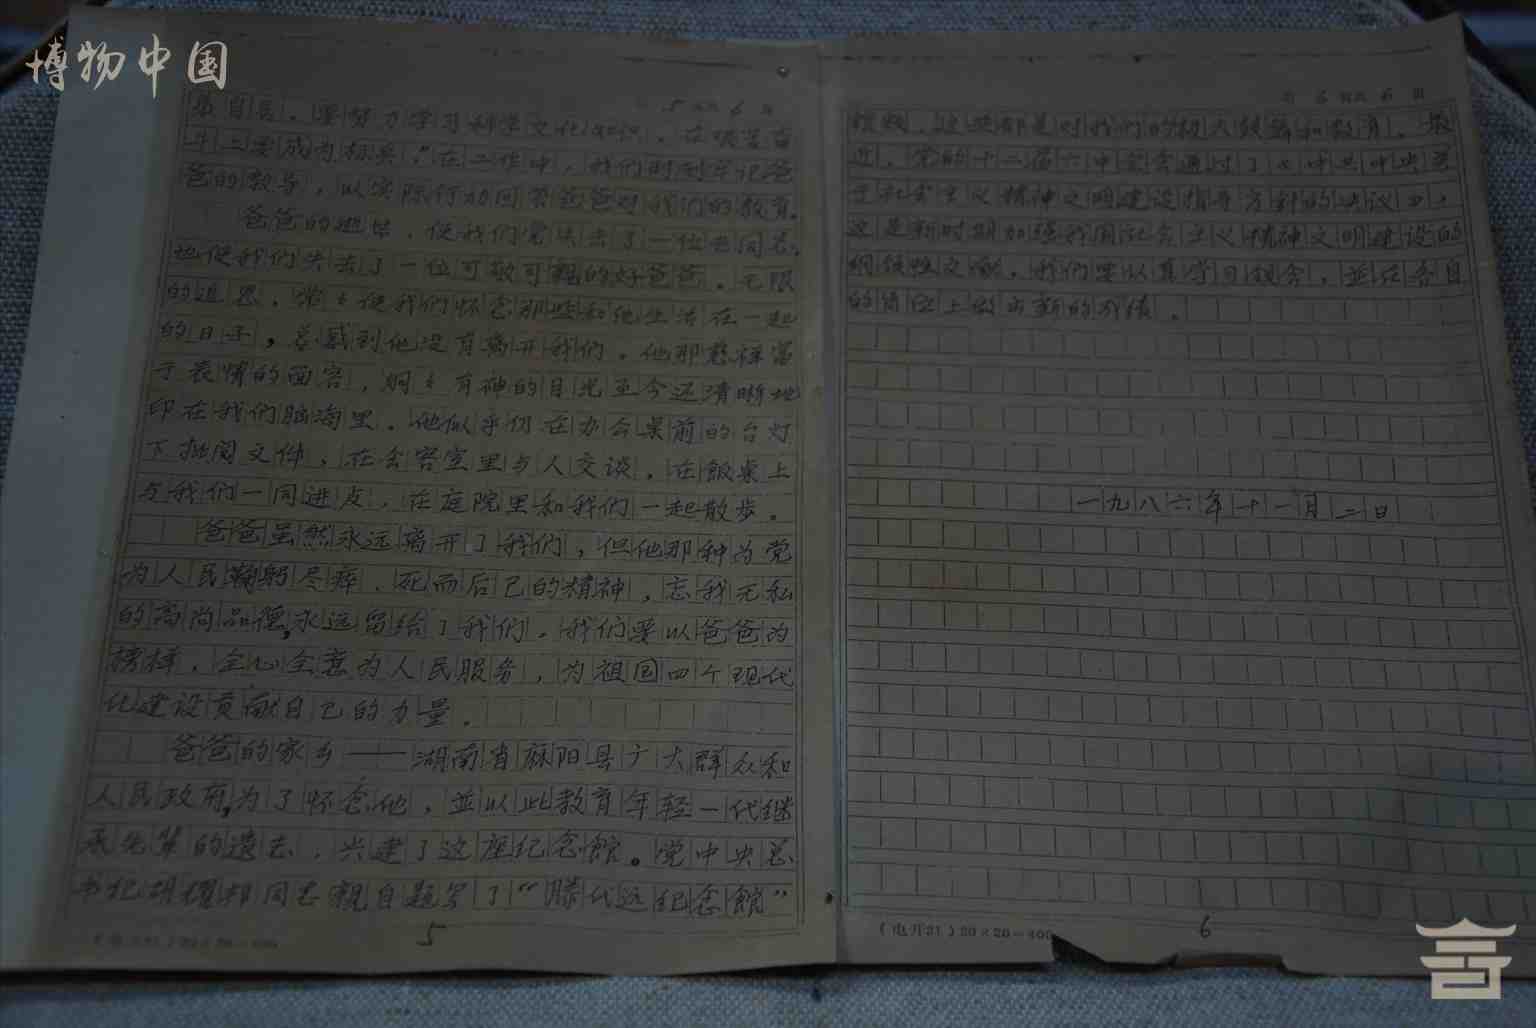 博物中国
第 5 页共 6 页
要努力学习科学文化知识，在艰苦奋
斗上要成为标兵。”在工作中，我们时刻牢记爸
爸的教导，以实际行动回答爸爸对我们的教育。
爸爸的逝世，使我们党失去了一位老同志，
也使我们失去了一位可敬可親的好爸爸。无限
的追思，常々使我们怀念那些和他生活在一起
的日子，总感到他没有离开我们。他那慈祥富
于表情的面容，炯々有神的目光至今还清晰地
印在我们脑海里。他似乎仍在办公桌前的台灯
下批阅文件，在会客室里与人交谈，在飯桌上
与我们一同进餐，在庭院里和我们一起散步。
爸爸虽然永远离开了我们，但他那种为党
为人民鞠躬尽瘁、死而后已的精神，忘我无私
的高尚品德，永远留给了我们。我们要以爸爸为
榜样，全心全意为人民服务，为祖国四个现代
化建设贡献自己的力量。
爸爸的家乡——湖南省麻阳县广大群众和
人民政府，为了怀念他，並以此教育年轻一代继
承先辈的遗志，兴建了这座纪念館。党中央总
书纪胡耀邦同志親自题写了“滕代远纪念館”
5
第 6 页共 6 页
这些都是对我们的极大鼓舞和教育。最
近，党的十二届六中全会通过了《中共中央关
于社会主义精神文明建设指导方针的决议》，
这是新时期加强我国社会主义精神文明建设的
纲领性文献。我们要认真学习领会，並在各自
的岗位上做出新的成绩。
一九八六年十一月二日
（电开21）20×20=400
6